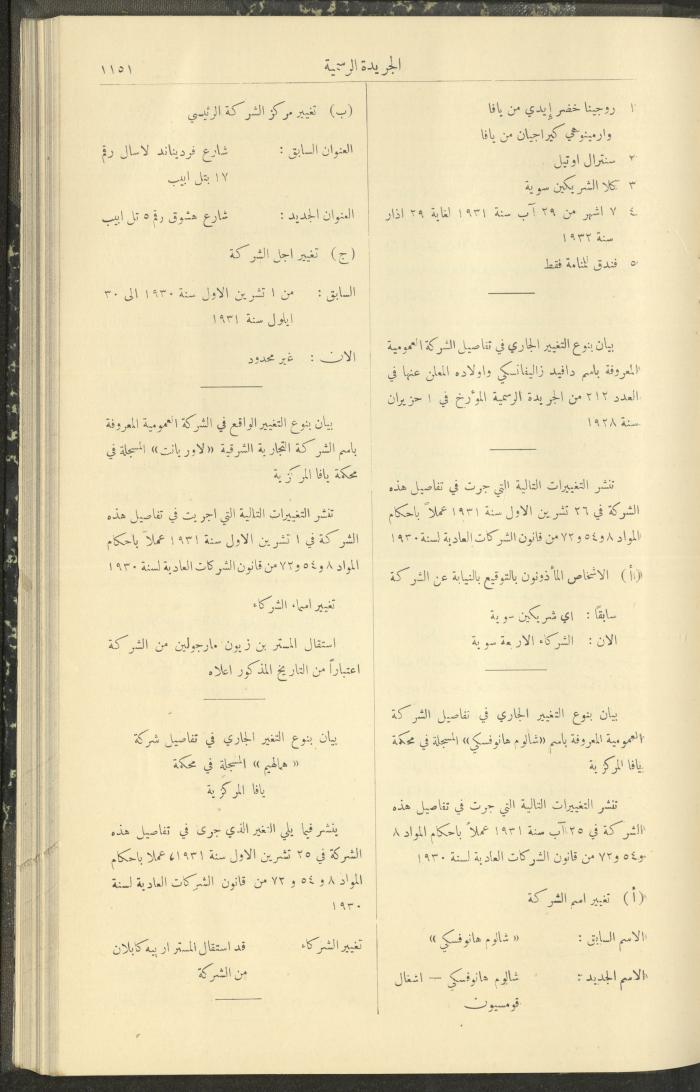 الجريدة الرسمية
١١٥١
١ روجينا خضر إيدي من يافا
وارمينوهي كيراجيان من يافا
٢ سنترال اوتيل
٣ كلا الشريكين سوية
٤ ٧ اشهر من ٢٩ آب سنة ١٩٣١ لغاية ٢٩ اذار
سنة ١٩٣٢
٥ فندق للمنامة فقط
بيان بنوع التغيير الجاري في تفاصيل الشركة العمومية
المعروفة باسم دافيد زاليفانسكي واولاده المعلن عنها في
العدد ٢١٢ من الجريدة الرسمية المؤرخ في ١ حزيران
سنة ١٩٢٨
تنشر التغييرات التالية التي جرت في تفاصيل هذه
الشركة في ٢٦ تشرين الاول سنة ١٩٣١ عملاً باحكام
المواد ٨ و٥٤ و٧٢ من قانون الشركات العادية لسنة ١٩٣٠
(أ) الاشخاص المأذونون بالتوقيع بالنيابة عن الشركة
سابقًا : اي شريكين سوية
الان : الشركاء الاربعة سوية
بيان بنوع التغيير الجاري في تفاصيل الشركة
العمومية المعروفة باسم «شالوم هانوفسكي» المسجلة في محكمة
يافا المركزية
تنشر التغييرات التالية التي جرت في تفاصيل هذه
الشركة في ٢٥ آب سنة ١٩٣١ عملاً باحكام المواد ٨
و٥٤ و٧٢ من قانون الشركات العادية لسنة ١٩٣٠
(أ) تغيير اسم الشركة
الاسم السابق : « شالوم هانوفسكي »
الاسم الجديد : شالوم هانوفسكي — اشغال
قومسيون
(ب) تغيير مركز الشركة الرئيسي
العنوان السابق : شارع فرديناند لاسال رقم
١٧ بتل ابيب
العنوان الجديد : شارع هشوق رقم ٥ تل ابيب
(ج) تغيير اجل الشركة
السابق : من ١ تشرين الاول سنة ١٩٣٠ الى ٣٠
ايلول سنة ١٩٣١
الان : غير محدود
بيان بنوع التغيير الواقع في الشركة العمومية المعروفة
باسم الشركة التجارية الشرقية «لاوريانت» المسجلة في
محكمة يافا المركزية
تنشر التغييرات التالية التي اجريت في تفاصيل هذه
الشركة في ١ تشرين الاول سنة ١٩٣١ عملاً باحكام
المواد ٨ و٥٤ و٧٢ من قانون الشركات العادية لسنة ١٩٣٠
تغيير اسماء الشركاء
استقال المستر بن زيون مارجولين من الشركة
اعتباراً من التاريخ المذكور اعلاه
بيان بنوع التغير الجاري في تفاصيل شركة
« همالهيم » المسجلة في محكمة
يافا المركزية
ينشر فيما يلي التغير الذي جرى في تفاصيل هذه
الشركة في ٢٥ تشرين الاول سنة ١٩٣١، عملا باحكام
المواد ٨ و ٥٤ و ٧٢ من قانون الشركات العادية لسنة
١٩٣٠
تغيير الشركاء قد استقال المستر اربيه كابلان
من الشركة